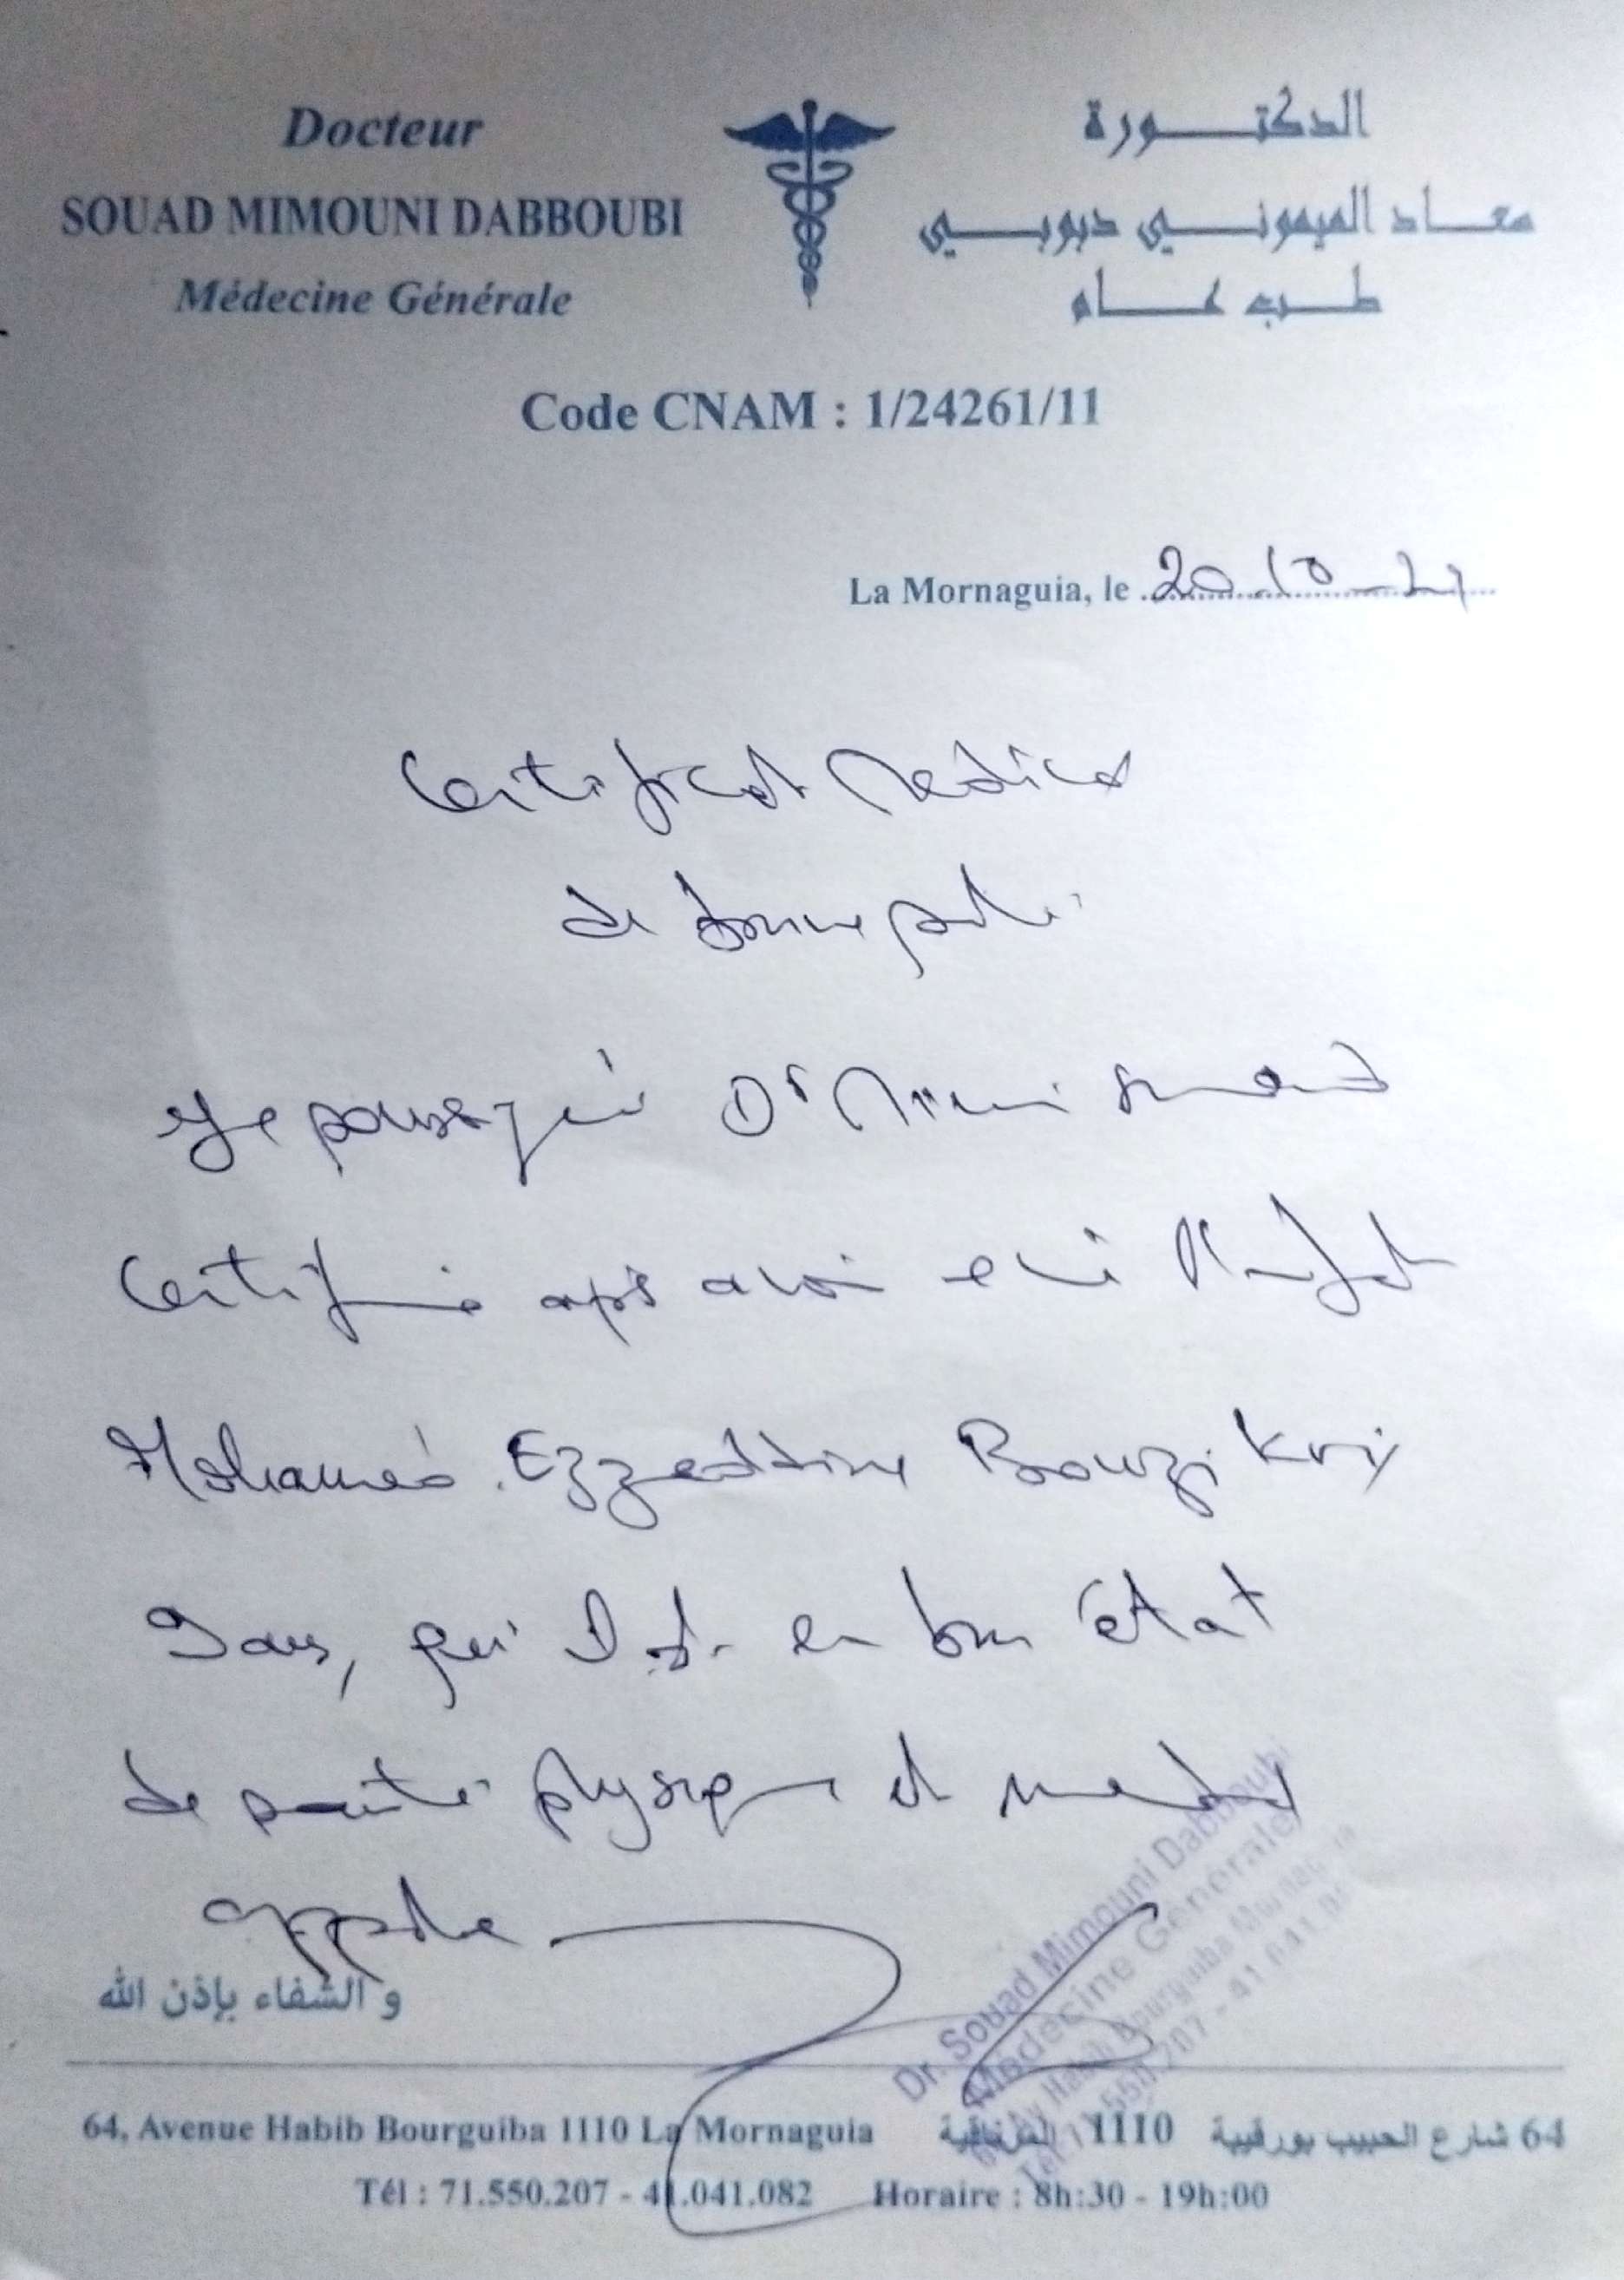 Docteur
SOUAD MIMOUNI DABBOUBI
Médecine Générale
الدكتورة
سعاد الميموني دبوبي
طب عام
Code CNAM : 1/24261/11
La Mornaguia, le 20-10-21
Certificat Médical
de bonne santé
Je soussigné Dr Mimouni Souad
Certifie après avoir l'enfant
Mohamed Ezzeddine Bouzikri
en bon état
de santé physique et mental
apparente
Dr. Souad Mimouni Dabboubi
Médecine Générale
64, Av Habib Bourguiba Mornaguia
Tél: 71.550.207 - 41.041.082
و الشفاء بإذن الله
64, Avenue Habib Bourguiba 1110 La Mornaguia
64 شارع الحبيب بورقيبة 1110 المرناقية
Tél : 71.550.207 - 41.041.082 Horaire : 8h:30 - 19h:00